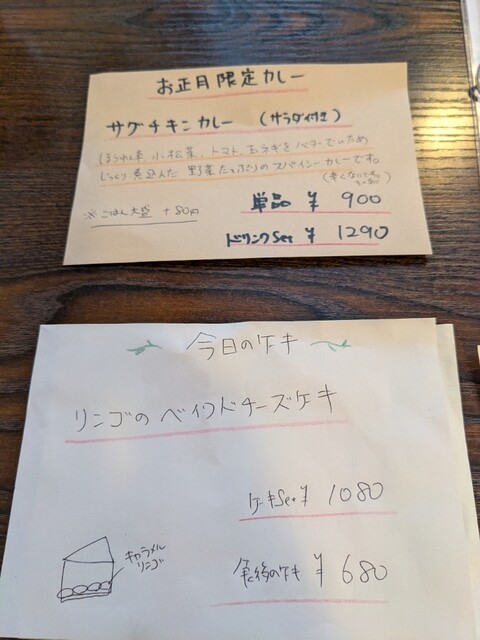 お正月限定カレー
サグチキンカレー (サラダ付き)
ほうれん草、小松菜、トマト、玉ネギをバターでいため
じっくり煮込んだ 野菜たっぷりのスパイシーカレーです。
(辛くないです。
単品 ¥ 900
※ごはん大盛 +80円
ドリンクSet ¥ 1290
今日のケーキ
リンゴの ベイクドチーズケーキ
ケーキSet ¥ 1080
食後のケーキ ¥ 680
キャラメル
リンゴ